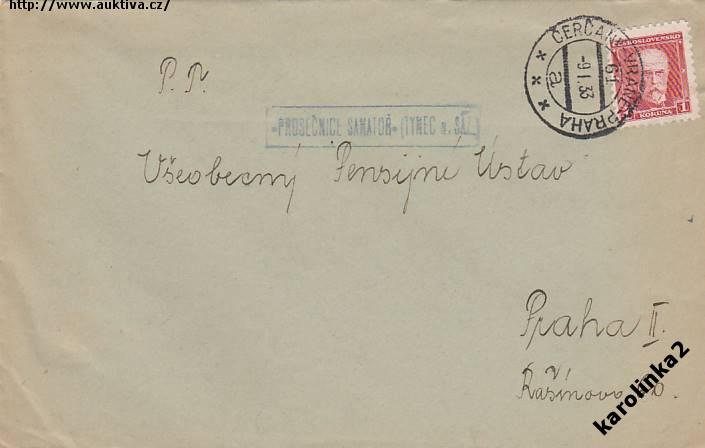 http://www.auktiva.cz/
P. P.
ČERČANY-VRANÉ-PRAHA
61
-9.I.33
a
ČESKOSLOVENSKO
1
KORUNA
»PROSEČNICE SANATOŘ« (TÝNEC n. SÁZ.)
Všeobecný Pensijné Ústav
Praha II.
Rašínovo
karolinka2